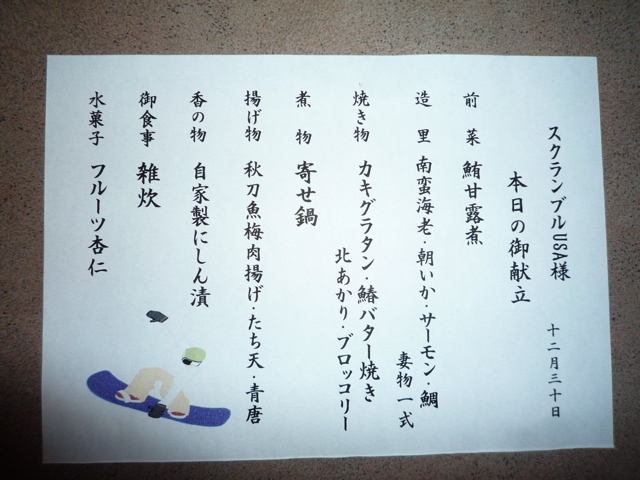 スクランブルUSA様 十二月三十日
本日の御献立
前菜 鮪甘露煮
造里 南蛮海老・朝いか・サーモン・鯛
妻物一式
焼き物 カキグラタン・鰆バター焼き
北あかり・ブロッコリー
煮物 寄せ鍋
揚げ物 秋刀魚梅肉揚げ・たち天・青唐
香の物 自家製にしん漬
御食事 雑炊
水菓子 フルーツ杏仁